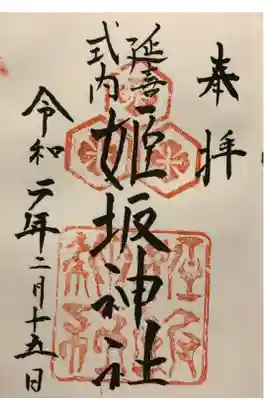 奉拝
延喜
式内
姫坂神社
令和二年二月十五日